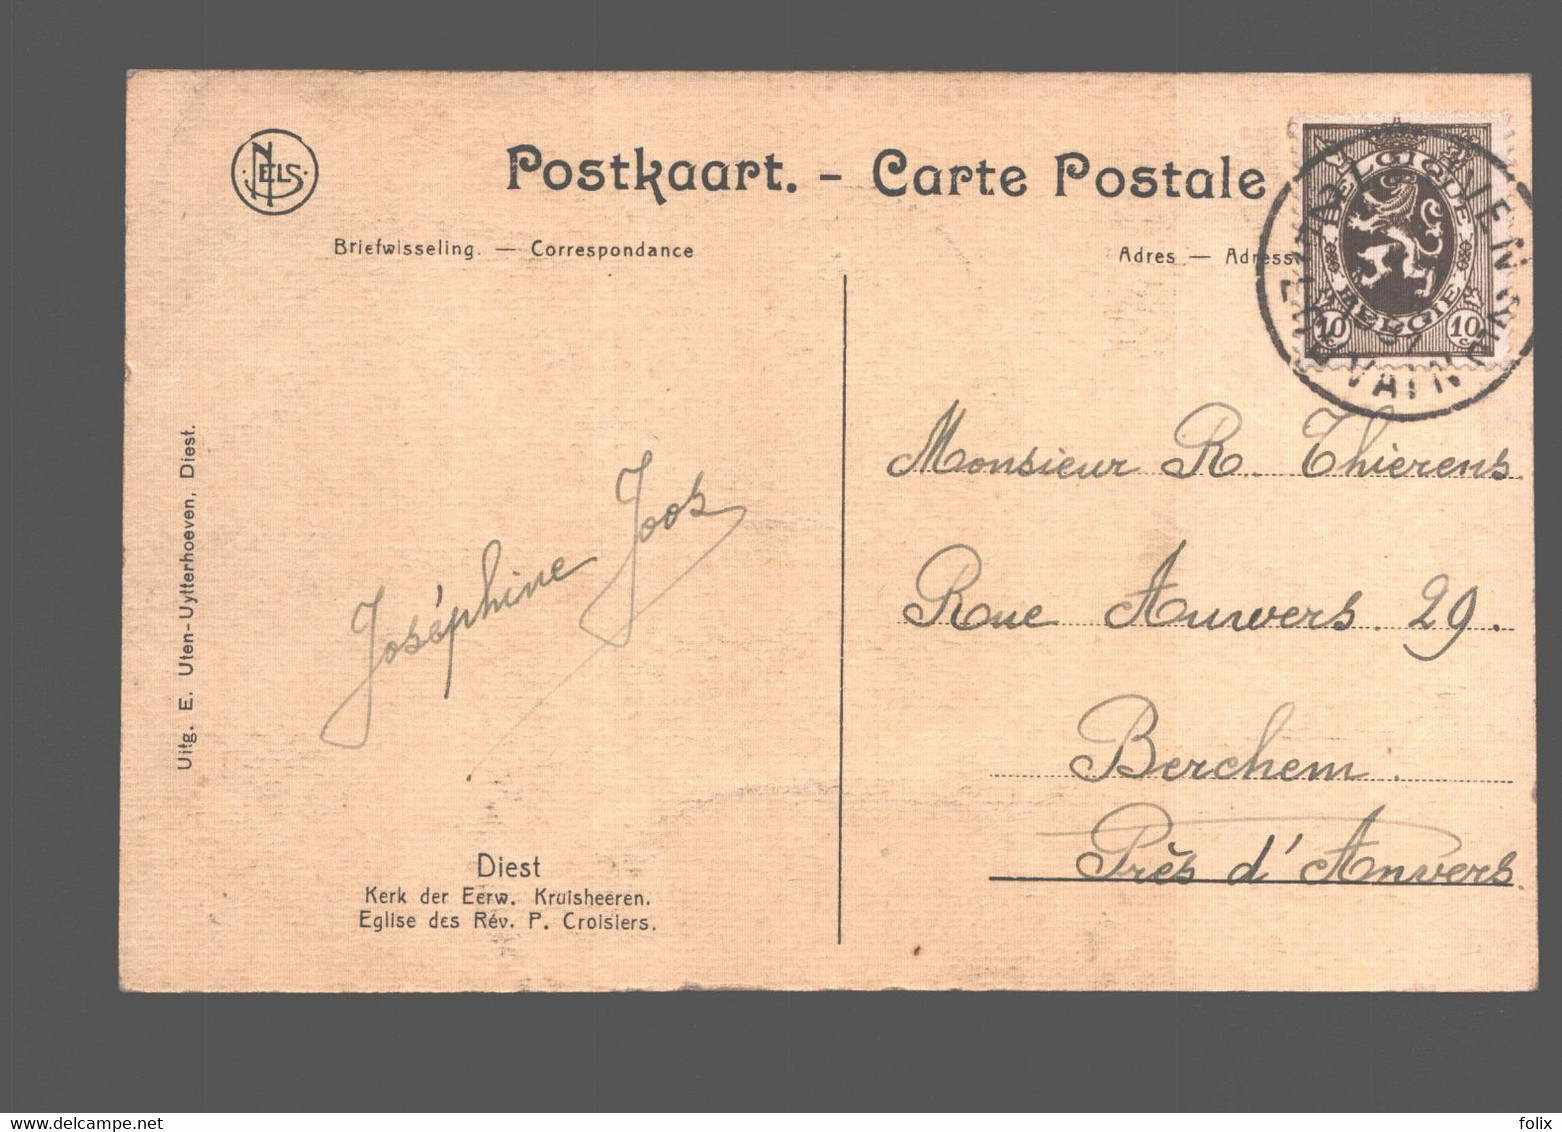 NELS
Postkaart. - Carte Postale
Briefwisseling. — Correspondance
Adres — Adresse
BELGIQUE
BELGIË
10 c 10 c
Monsieur R. Thierens
Rue Anvers. 29.
Berchem.
Près d'Anvers.
Joséphine Joos
Uitg. E. Uten-Uytterhoeven, Diest.
Diest
Kerk der Eerw. Kruisheeren.
Eglise des Rév. P. Croisiers.
folix